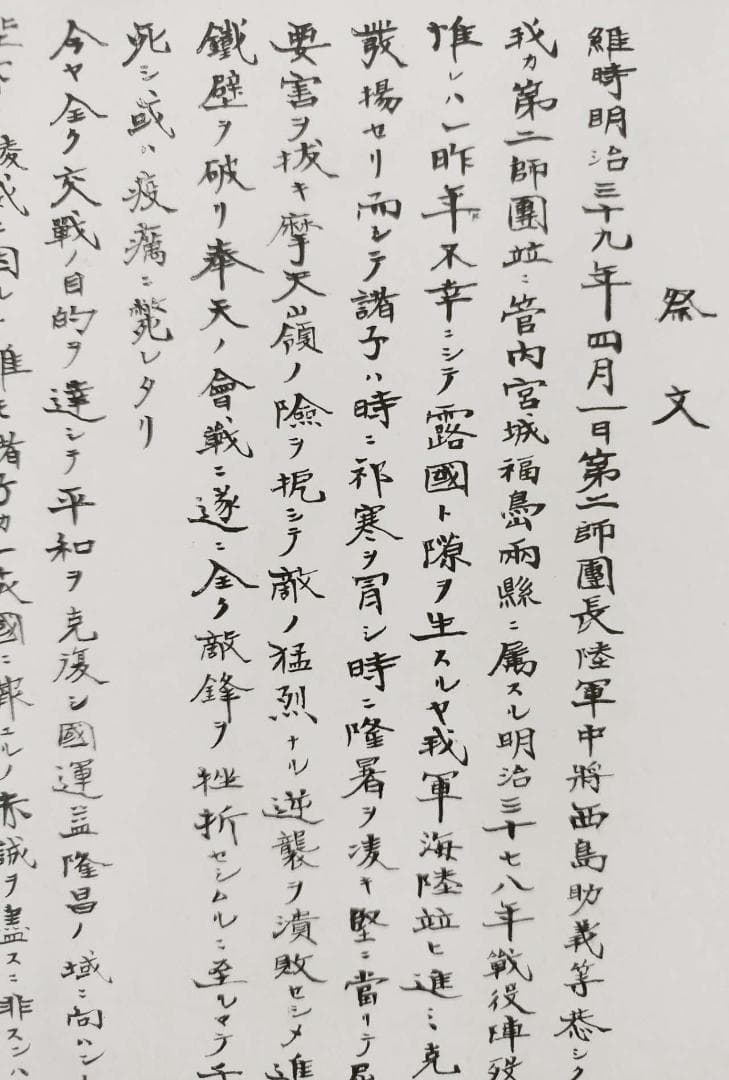 祭文
維時明治三十九年四月一日第二師團長陸軍中將西島助義等恭シク
我カ第二師團竝ニ管内宮城福島兩縣ニ属スル明治三十七八年戰役陣歿
惟レハ昨年不幸ニシテ露國ト隙ヲ生スルヤ我軍海陸竝ヒ進ミ克
發揚セリ而シテ諸子ハ時ニ祁寒ヲ冒シ時ニ隆暑ヲ凌キ堅ニ當リテ
要害ヲ拔キ摩天嶺ノ險ヲ扼シテ敵ノ猛烈ナル逆襲ヲ潰敗セシメ進
鐵壁ヲ破リ奉天ノ會戰ニ遂ニ全ク敵鋒ヲ挫折セシムルニ至ルマテ
死シ或ハ疫癘ニ斃レタリ
今ヤ全ク交戰ノ目的ヲ達シテ平和ヲ克復シ國運益隆昌ノ域ニ向ハント
陵威ニ因ルト雖モ諸子カ一哉國ニ報エルノ赤誠ヲ盡スニ非スンハ